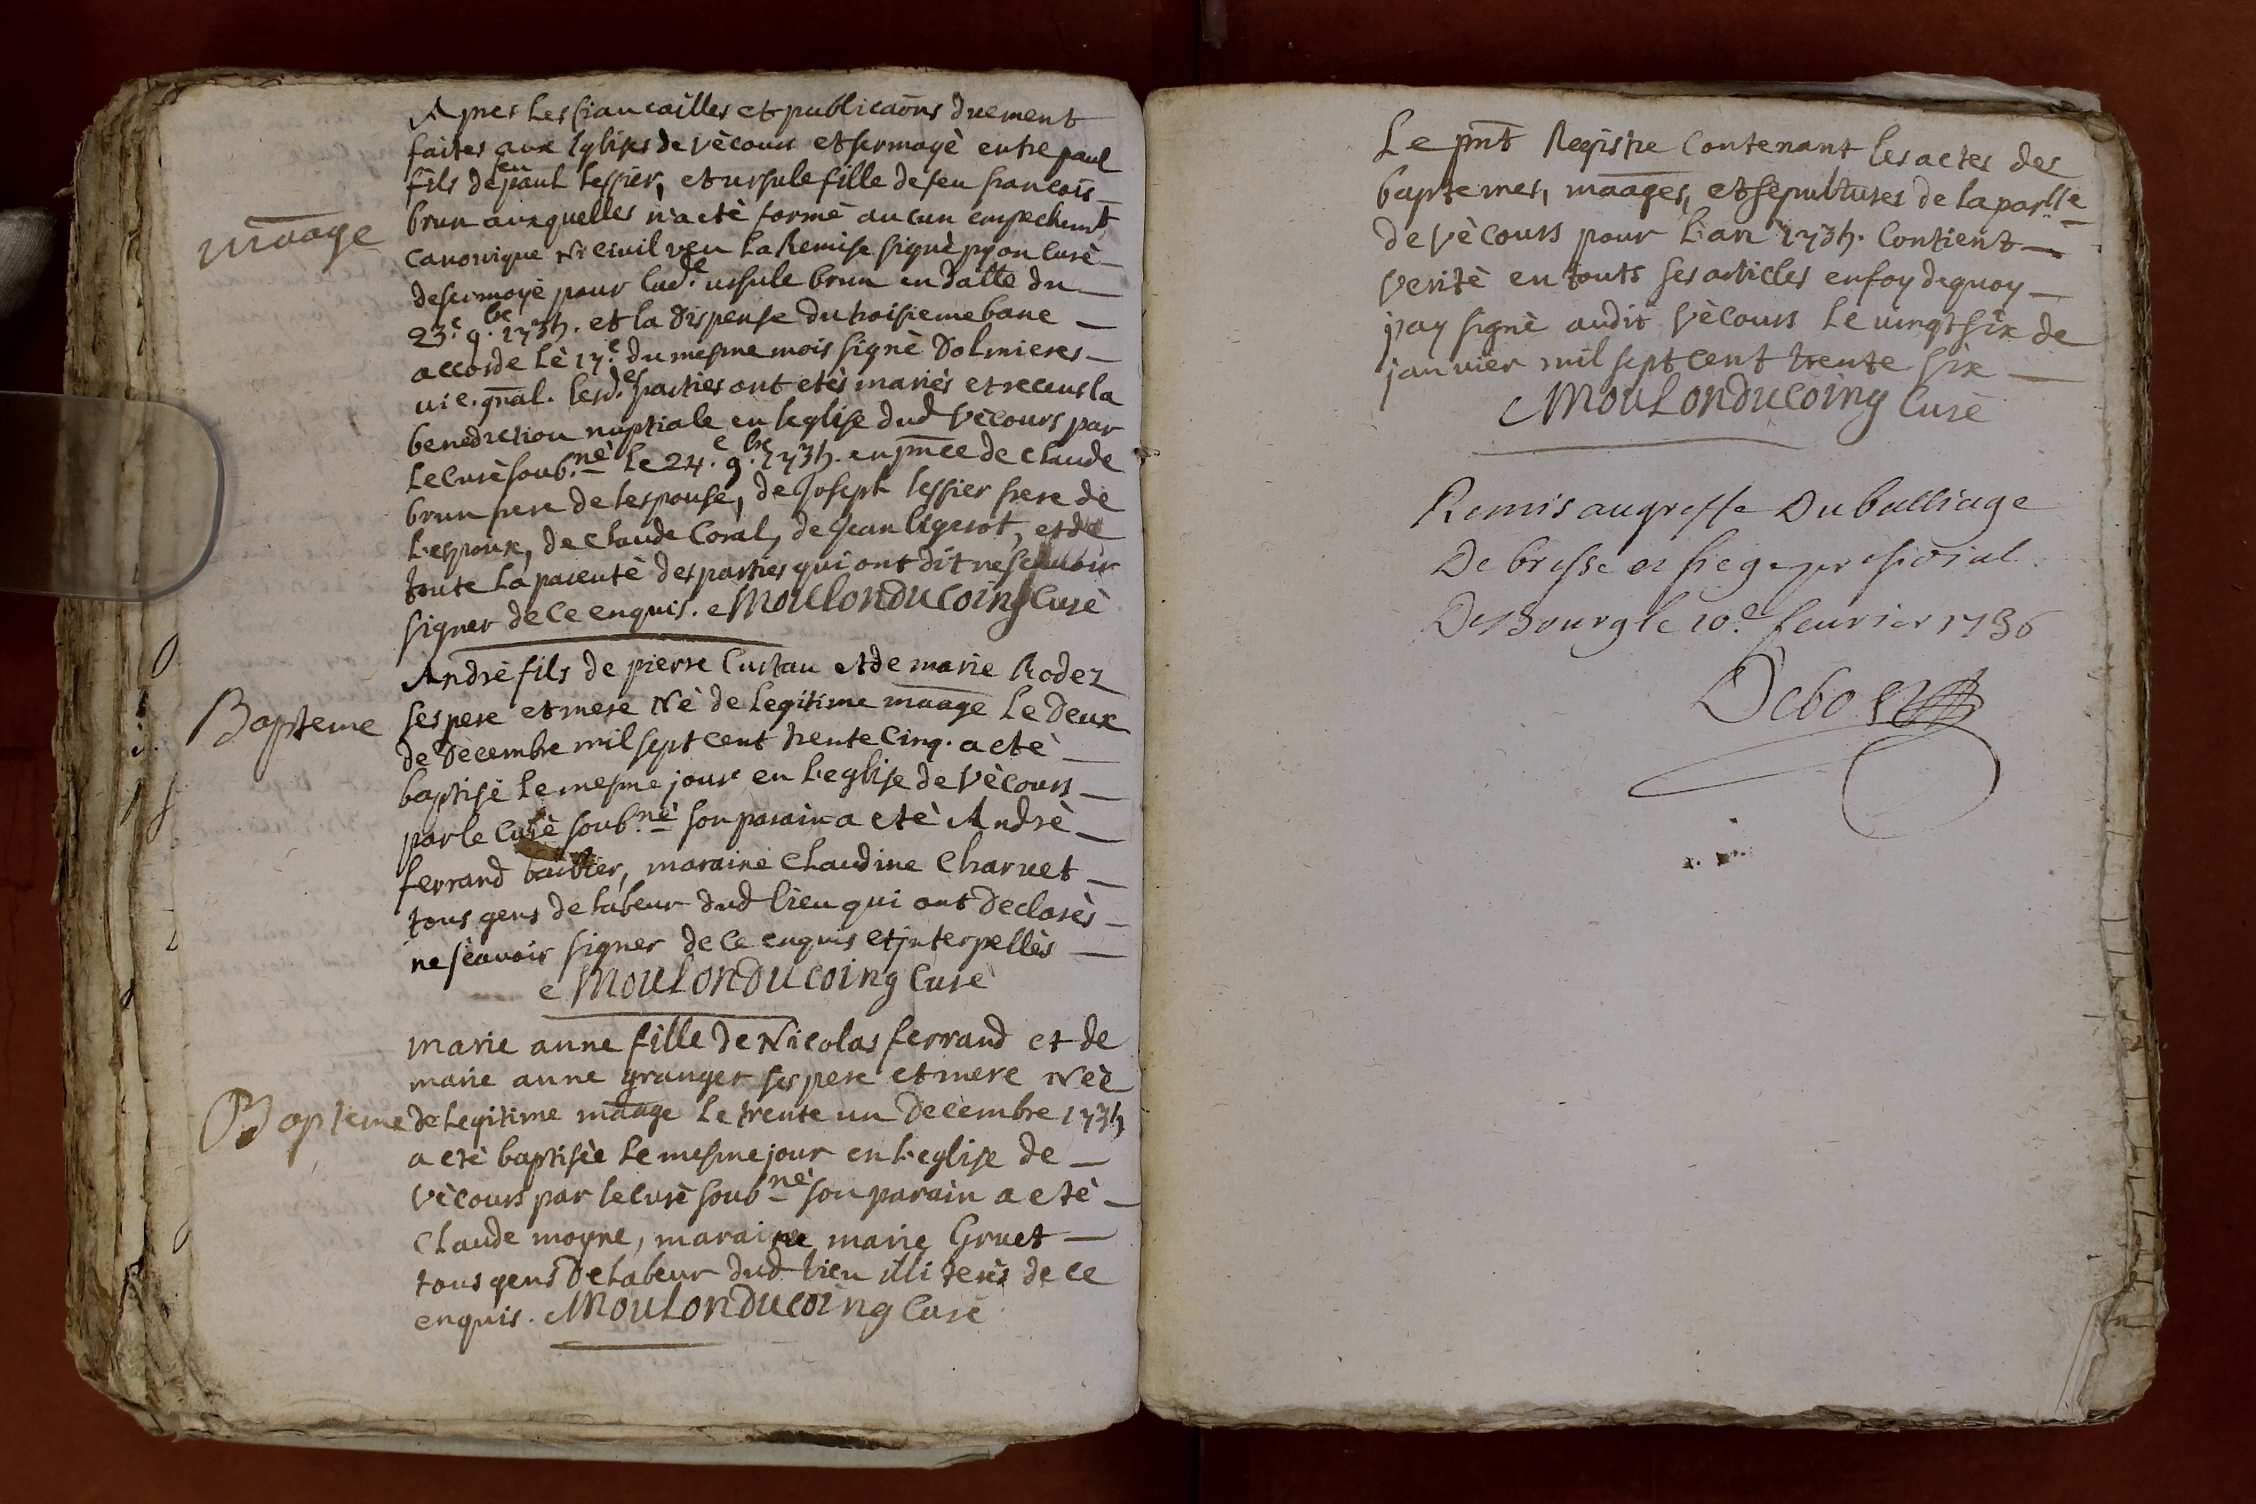 Apres les fiancailles et publicaōns duement
faites aux Eglises de vècours et sermoyè entre paul
fils de feu paul tessier, et ursule fille de feu francois
brun auxquelles n'a etè formè aucun empechemt
maage
canonique ni civil veu la Remise signè pyon Curè
de sermoyè pour lade. ursule brun en datte du
23.e 9.be 1735. et la dispense du troisieme banc
accordè lè 17.e du mesme mois signè Dolmieres
vic. gnal. lesd.es parties ont etès mariès et receus la
benediction nuptiale en leglise dud vècours par
le Curè soub.nè le 24.e 9.be 1735. en pnce de claude
brun frere de lespouse, de Joseph tessier frere de
l'espoux, de claude Coral, de Jean ligerot, et de
toute la parentè des parties qui ont dit ne scavoir
signer de ce enquis. Moulonducoing Curè
Andrè fils de pierre Curtau et de marie Rodez
Bapteme
ses pere et mere nè de legitime maage le deux
de Decembre mil sept cent trente cinq. a etè
baptisè le mesme jour en l'eglise de vècours
par le Curè soub.nè son parain a etè Andrè
ferrand , maraine claudine Charvet
tous gens de labeur dud lieu qui ont declarès
ne scavoir signer de ce enquis et interpellès
Moulonducoing Curè
marie anne fille de Nicolas ferrand et de
marie anne granger ses pere et mere nèe
Bapteme
de legitime maage le trente un decembre 1735
a etè baptisèe le mesme jour en l'eglise de
vècours par le Curè soub.nè son parain a etè
claude moyne, maraine marie Gruet
tous gens de labeur dud lieu illiterès de ce
enquis. Moulonducoing Curè
Le pnt Registre Contenant les actes des
baptemes, maages, et sepultures de la parsse
de vècours pour l'an 1735. Contient
veritè en touts ses articles en foy dequoy
jay signè audit vècours le vingt six de
janvier mil sept cent trente six
Moulonducoing Curè
Remis au greffe Du balliage
De bresse et siege presidial
De Bourg le 10.e fevrier 1736